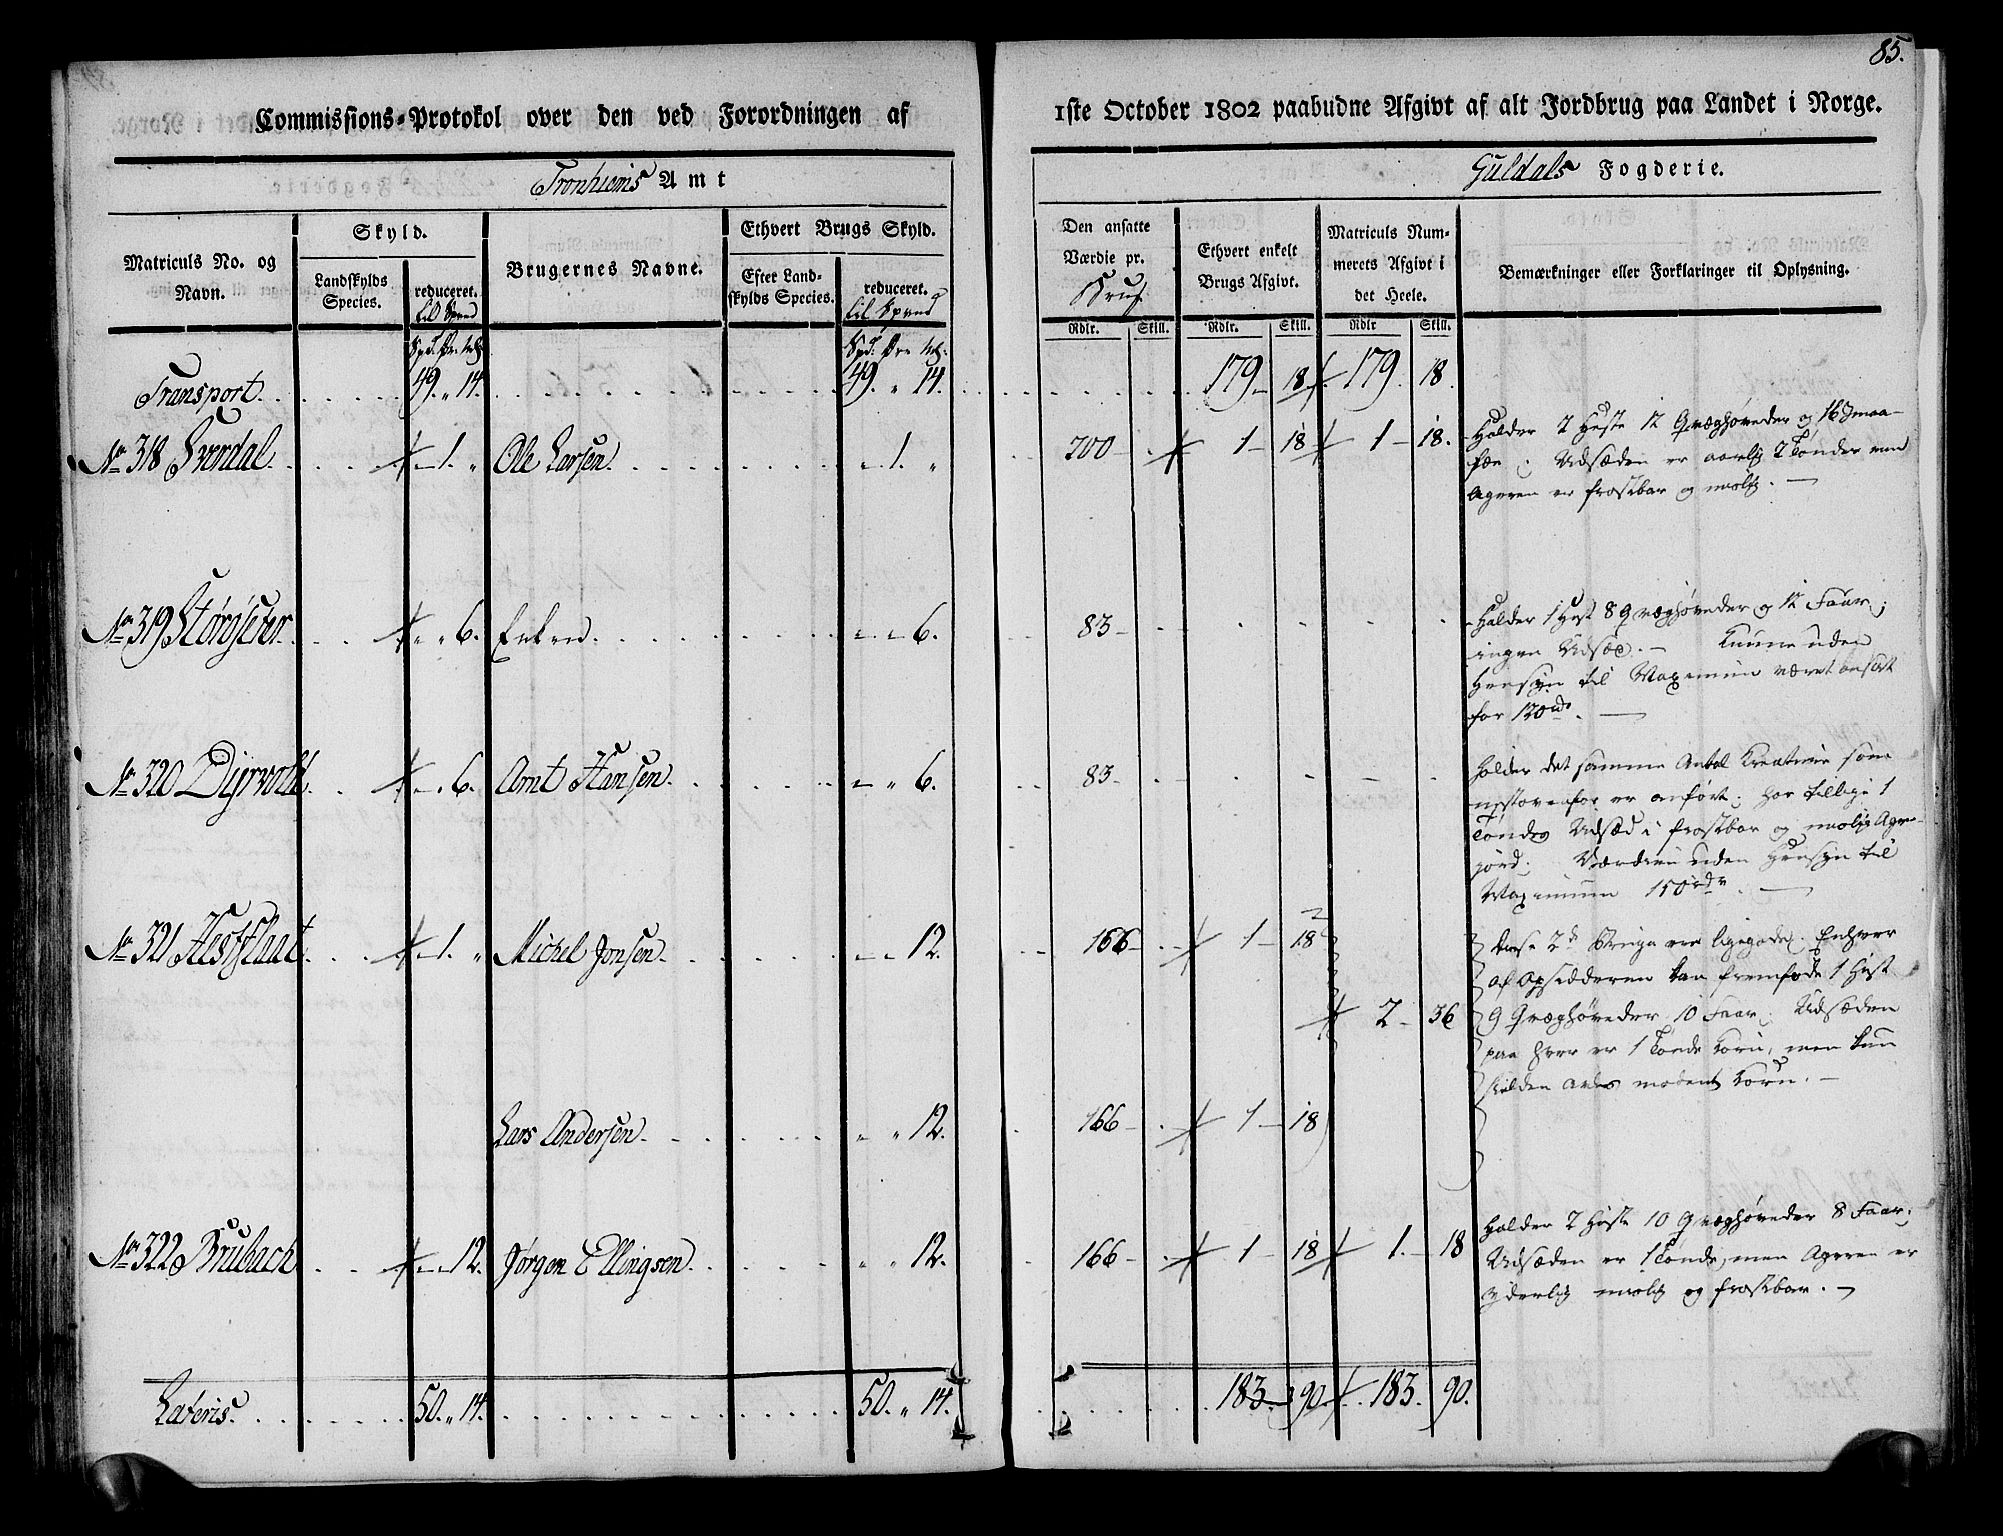 85.
Commissions-Protokol over den ved Forordningen af
1ste October 1802 paabudne Afgivt af alt Jordbrug paa Landet i Norge.
Tronhiems Amt
Guldals Fogderie.
Matriculs No. og Navn.
Skyld.
Landskylds Species.
reduceret.
til Spand
Brugernes Navne.
Ethvert Brugs Skyld.
Efter Landskylds Species.
reduceret.
til Spand
Den ansatte Værdie pr.
Ethvert enkelt Brugs Afgivt.
Matriculs Nummerets Afgivt i det Heele.
Bemærkninger eller Forklaringer til Oplysning.
Rdlr. Skill. Rdlr. Skill. Rdlr Skill.
Transport. 49. " 14. 49. " 14. 179 18 179. 18.
No 318 Sverdal. 1. " Ole Larsen. 1. " 200 1 18 1 18.
Holder 2 Heste 12 Qvæghøveder og 16 Smaa-
fæe; Udsæden er aarlig 2 Tønder men
Ageren er frostbar og
No 319 Størseter " 6. Enken 6. 83
Holder 1 Hest 8 Qvæghøveder og 12 Faar;
ingen Udsæd. Kunne uden
Hensyn til Maximum været ansat
for 120 rdr.
No 320 Dyrvold. " 6. Arnt Hansen. " 6. 83
holder det samme Antal Kreature som
næstovenfor er anført; har tillige 1
Tøndes Udsæd i frostbar og Ager-
jord; Værdien uden Hensyn til
Maximum 150 rdr.
No 321 Hestflaat. 1. " Michel Jonsen. 12. 166 1 18
2 36
disse 2de Bruge ere ligegode. Enhver
af Opsidderen kan fremføde 1 Hest
9 Qvæghøveder 10 Faar; Udsæden
paa hver er 1 Tønde Korn, men kun
sielden avles modent Korn.
Lars Andersen. " 12. 166 1 18
No 322 Brubach 12. Jørgen Ellingsen. " 12. 166 1 18 1. 18
Holder 2 Heste 10 Qvæghøveder 8 Faar;
Udsæden er 1 Tønde, men Ageren er
yderlig og frostbar.
Lateris. 50. " 14. 50. " 14. 183 90. 183. 90.